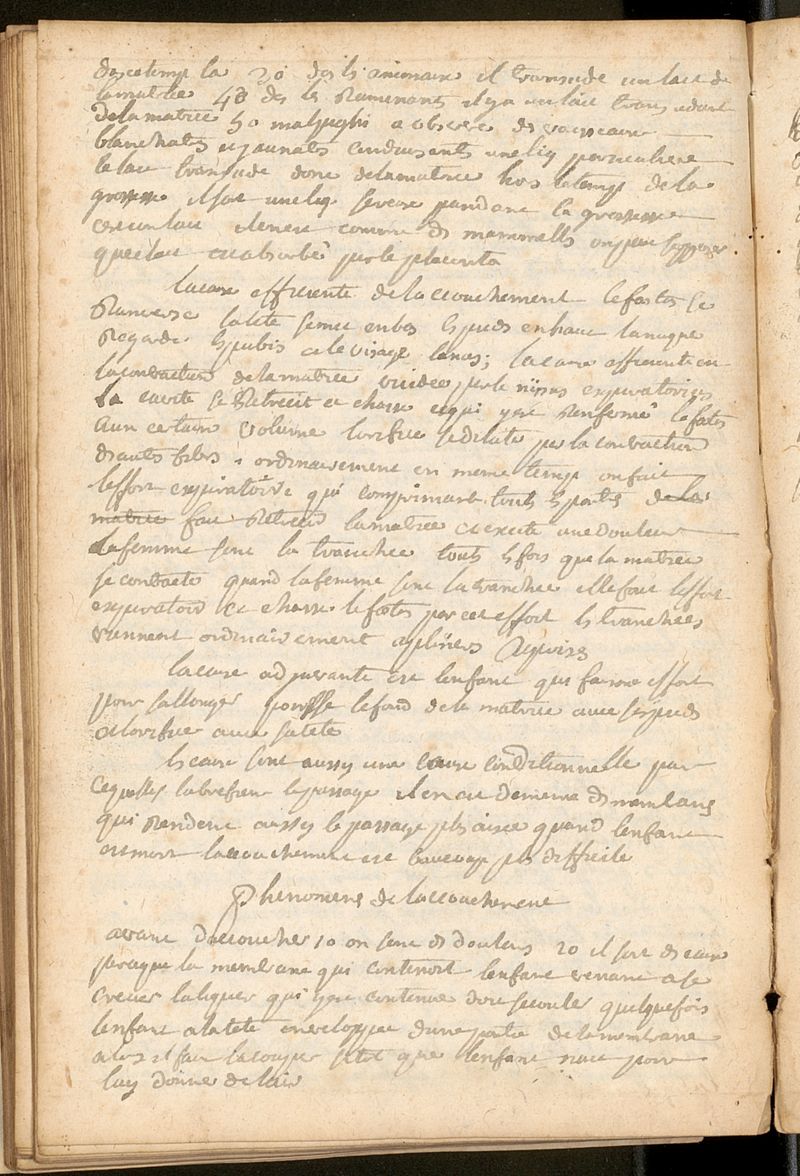 dascetemp la 30 dos ls animaux il transude un lait de
la matrice 40 dos les Ruminants il y a un lait transudant
de la matrice 50 malpighi a observé ds vaisseaux
blanchatés et jaunatés conduisents une liq particuliere
le lait transude donc de la matrice hors le temps de la
grossesse il sort une liq sereuse pandant la grossesse
cest un lait il en est comme ds mammelles on peut supposer
que ce lait est absorbé par le placenta
la cause efficiente de laccouchement le fœtes se
Ranverse la tete se met en bas ls pieds en haut la nuque
Regarde ls pubis et le visage lanus; la cause efficiente en
la contraction de la matrice vuidée par le nissus expiratorius
la cavité se Retrecit et chasse ce qui y est Renfermé le fœtes
a un certain volume lorifice se dilate par la contraction
ds auts fibrs ordinairement en meme temp on fait
leffort expiratoire qui comprimant touts ls parties de la
matrice fait Retrecir la matrice et excite une douleur
la femme sent la tranchée touts ls fois que la matrice
se contracte quand la femme sent la tranchée elle fait leffort
expiratoir et chasse le fœtes par cet effort ls tranchées
viennent ordinairement
la cause adjuvante est lenfant qui faisant effort
pour sallonger pousse le fond de la matrice avec ses pieds
et lorifice avec sa tete
ls eaux sont aussy une cause conditionnelle par
cequelles lubrefient le passage il en est de meme ds membrans
qui Rendent aussy le passage pls aisée quand lenfant
est mort laccouchement est baucoup pls difficile
Phenomens de laccouchement
avant daccoucher 10 on sent ds douleurs 20 il sort ds eaux
parceque la membrane qui contenoit lenfant venant a se
crever la liquer qui y est contenue doit secouler quelquefois
lenfant a la tete enveloppée dune partie de la membrane
alors il faut la couper sitot que lenfant nait pour
luy donner de lair